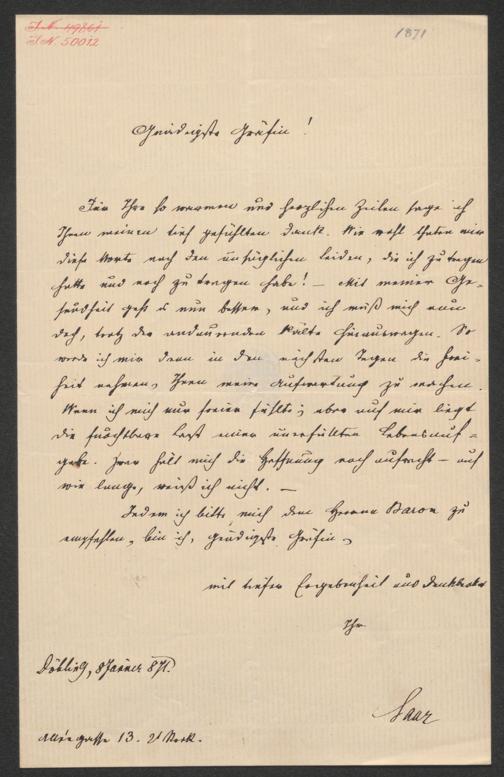 I.N. 49761
I.N. 50012
1871
Gnädigste Gräfin!
Für Ihre so warmen und herzlichen Zeilen sage ich
Ihnen meinen tief gefühlten Dank. Wie wohl thaten mir
diese Worte nach den unsäglichen Leiden, die ich zu tragen
hatte und noch zu tragen habe! – Mit meiner Ge-
sundheit geht es nun besser, und ich muß mich nun
doch, trotz der andauernden Kälte hinauswagen. So
werde ich mir denn in den nächsten Tagen die Frei-
heit nehmen, Ihnen meine Aufwartung zu machen.
Wenn ich mich nur freier fühlte; aber auf mir liegt
die furchtbare Last einer unerfüllten Lebensauf-
gabe. Zwar hält mich die Hoffnung noch aufrecht – auf
wie lange, weiß ich nicht. –
Indem ich bitte, mich dem Herrn Baron zu
empfehlen, bin ich, gnädigste Gräfin,
mit tiefer Ergebenheit und Dankbarkeit
Ihr
Döbling, 8 Jänner 871.
Saar
Alleegasse 13. 2t Stock.